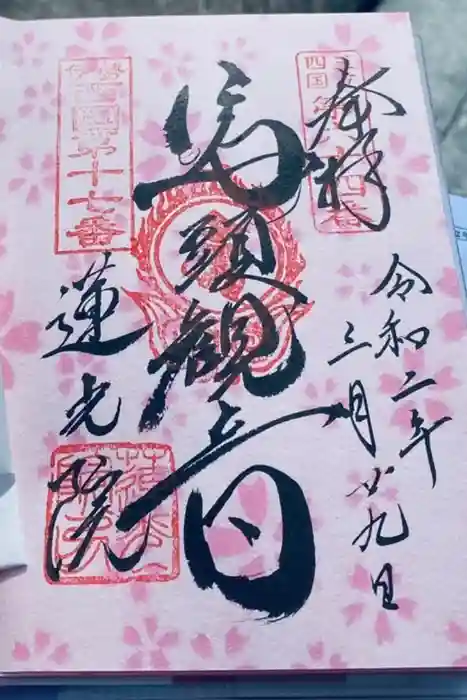 奉拝
令和二年
三月廿九日
馬頭観音
蓮光院
伊勢
西国第十七番
四国
蓮光
院